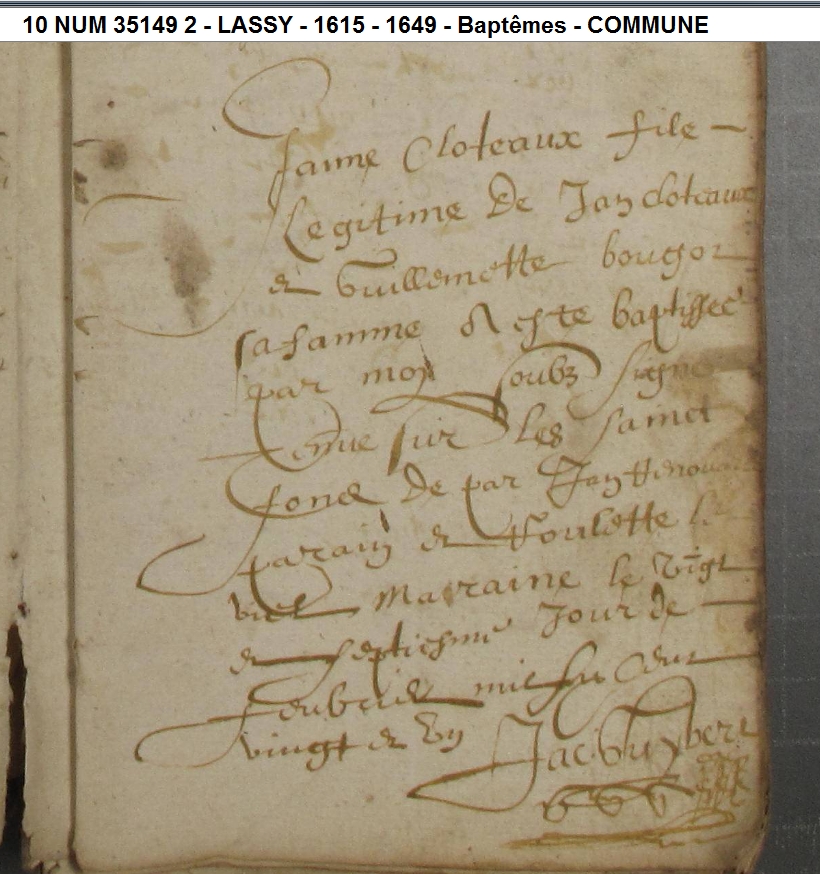 10 NUM 35149 2 - LASSY - 1615 - 1649 - Baptêmes - COMMUNE
Janne Cloteaux file
Legitime de Jan cloteaux
et Guillemette bougor
sa famme A este baptissee
par moy soubz signe
Tenue sur les sainct
fons de par Jan
parain et Roulette
marraine le vigt
et septiesme Jour de
febvrier mil six cent
vingt et un